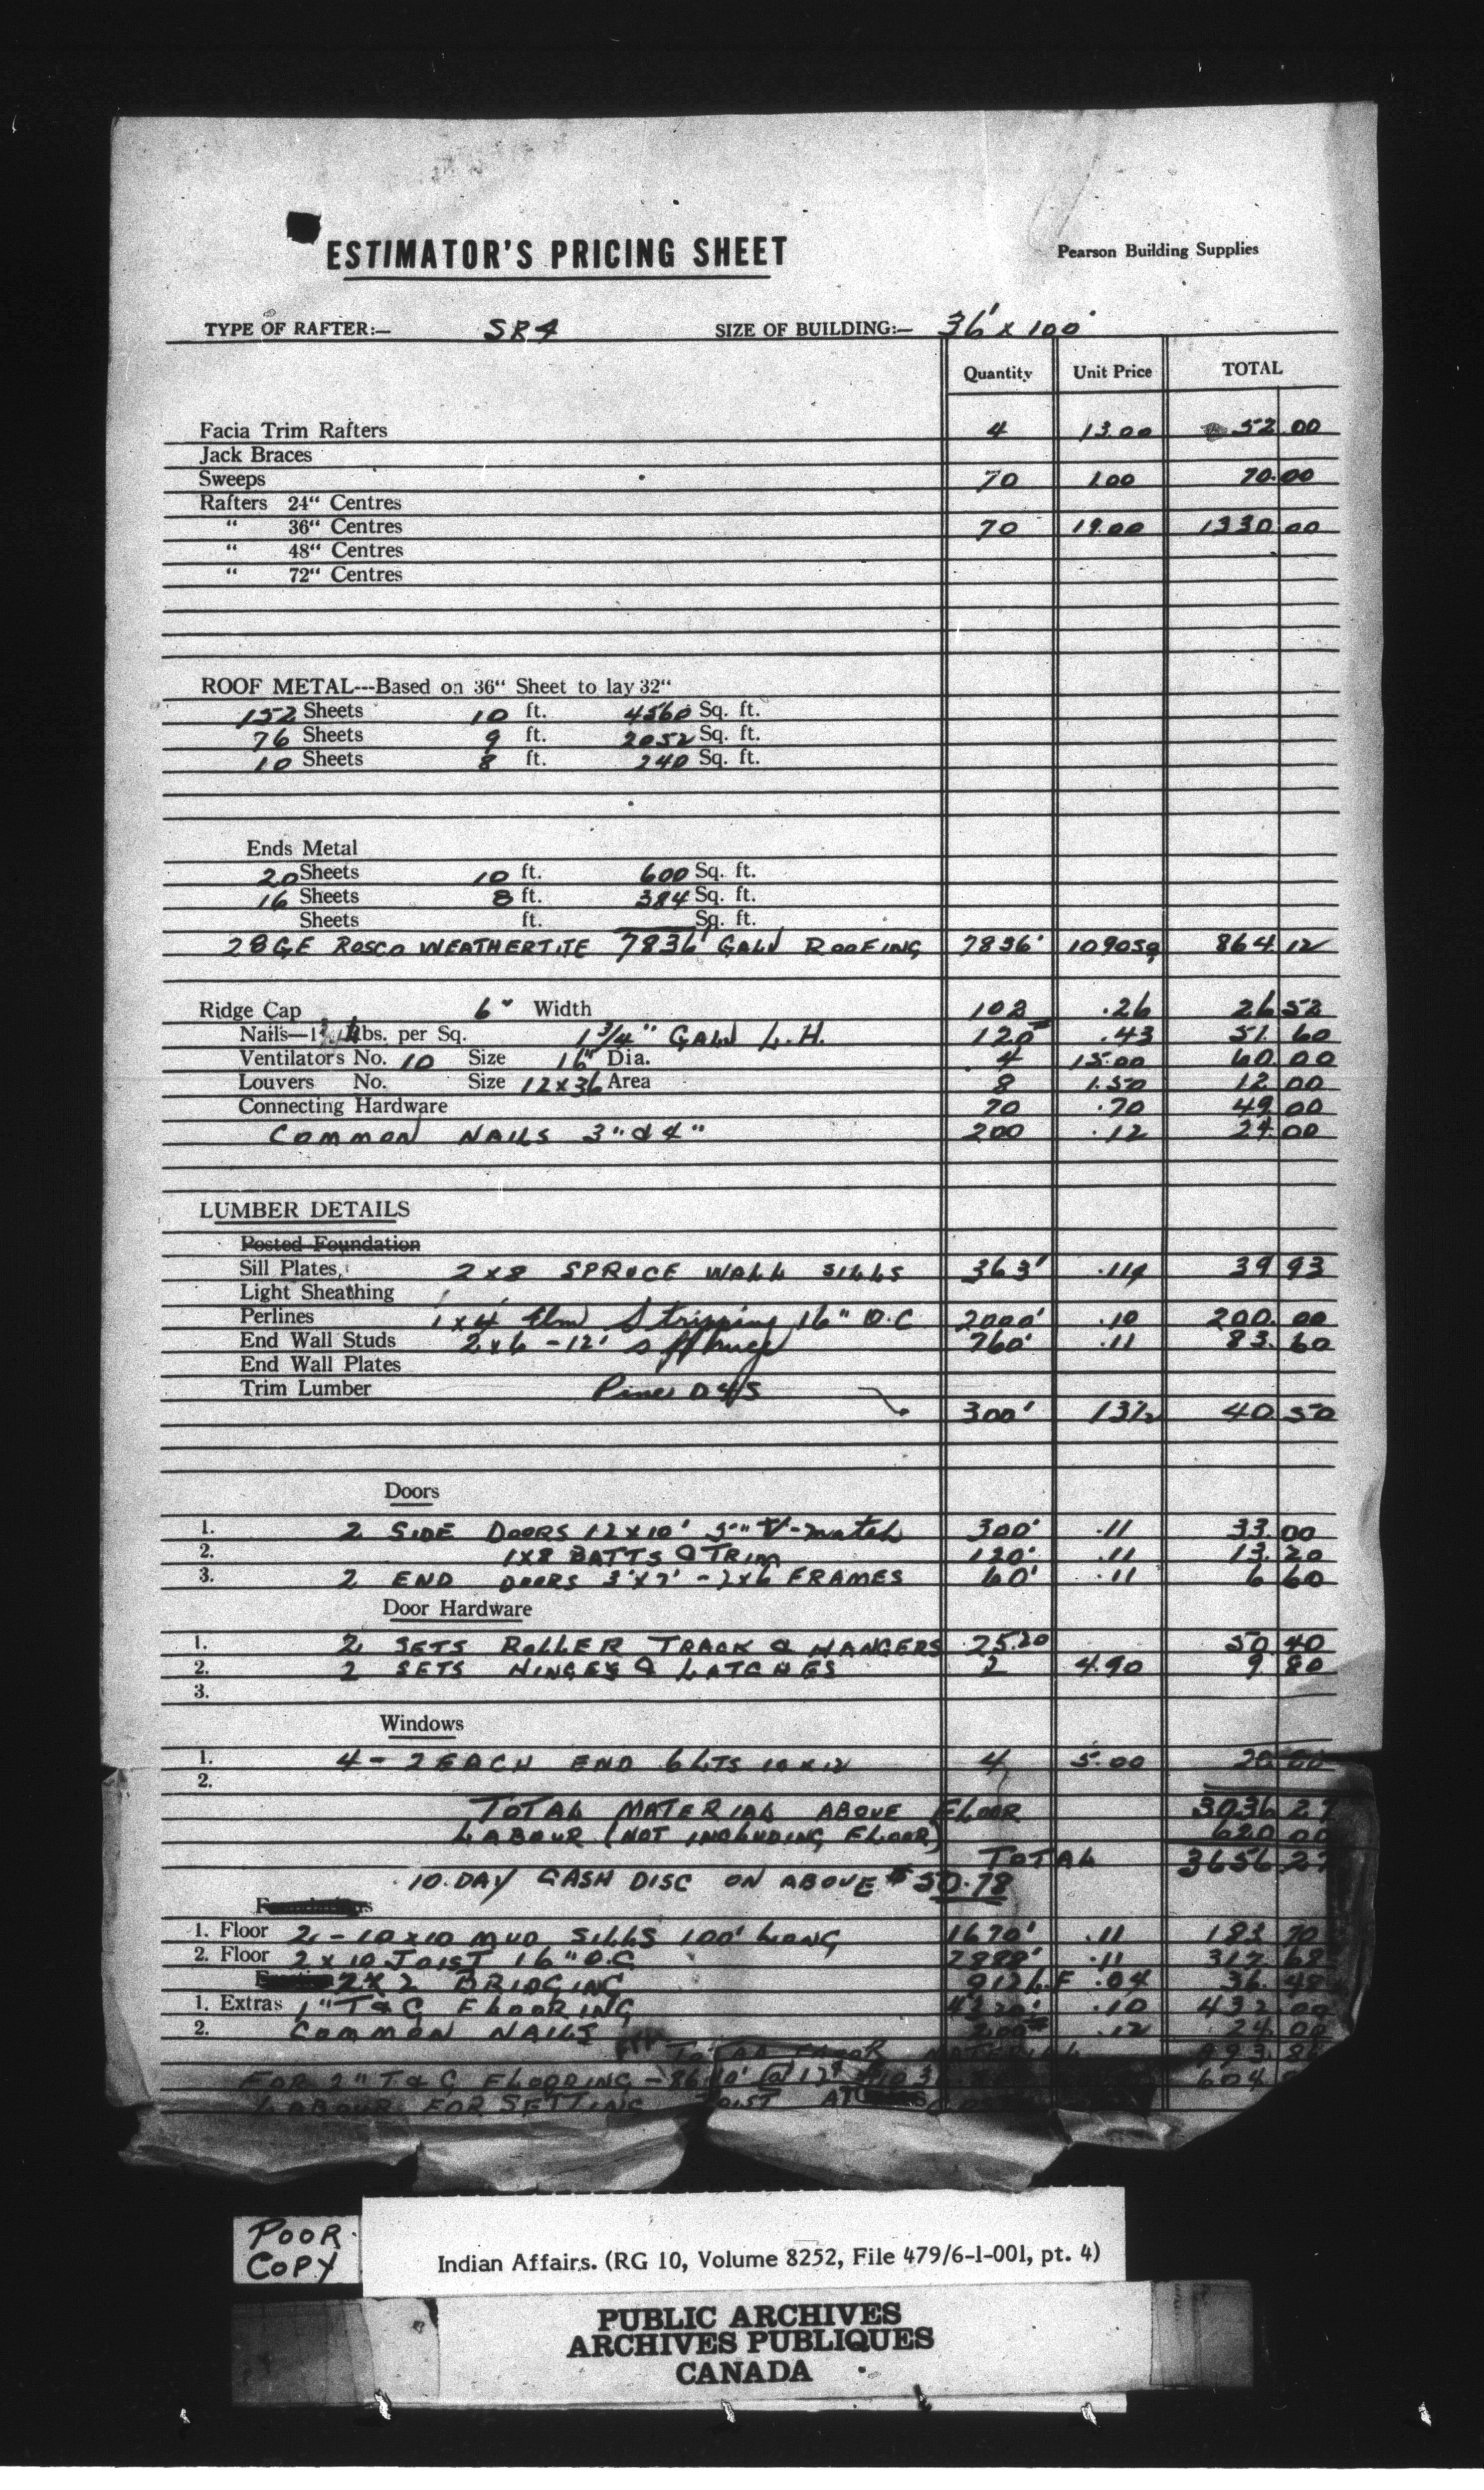 ESTIMATOR'S PRICING SHEET Pearson Building Supplies
TYPE OF RAFTER:— SR4 SIZE OF BUILDING:— 36' x 100'
Quantity Unit Price TOTAL
Facia Trim Rafters 4 13.00 52.00
Jack Braces
Sweeps 70 1.00 70.00
Rafters 24" Centres
" 36" Centres 70 19.00 1330.00
" 48" Centres
" 72" Centres
ROOF METAL---Based on 36" Sheet to lay 32"
152 Sheets 10 ft. 4560 Sq. ft.
76 Sheets 9 ft. 2052 Sq. ft.
10 Sheets 8 ft. 240 Sq. ft.
Ends Metal
20 Sheets 10 ft. 600 Sq. ft.
16 Sheets 8 ft. 384 Sq. ft.
Sheets ft. Sq. ft.
28 GE ROSCO WEATHERTITE 7836' GALV ROOFING 7836' 1090 sq 864 12
Ridge Cap 6" Width 102 .26 26 52
Nails—1 lbs. per Sq. 1 3/4" GALV L.H. 120# .43 51.60
Ventilators No. 10 Size 16" Dia. 4 15.00 60.00
Louvers No. Size 12x36 Area 8 1.50 12 00
Connecting Hardware 70 .70 49 00
COMMON NAILS 3" & 4" 200 .12 24 00
LUMBER DETAILS
Posted Foundation
Sill Plates, 2x8 SPRUCE WALL SILLS 363' .11 39 93
Light Sheathing
Perlines 1x4 Elm Stripping 16" O.C 2000' .10 200.00
End Wall Studs 2x6 - 12' spruce 760' .11 83.60
End Wall Plates
Trim Lumber Pine D4S
300' 13½ 40 50
Doors
1. 2 SIDE DOORS 12x10' 5" V-match 300' .11 33.00
2. 1x8 BATTS & TRIM 120' .11 13.20
3. 2 END DOORS 3'x7' - 2x6 FRAMES 60' .11 6 60
Door Hardware
1. 2 SETS ROLLER TRACK & HANGERS 25.20 50 40
2. 2 SETS HINGES & LATCHES 2 4.90 9 80
3.
Windows
1. 4 - 2 EACH END 6 LTS 10x12 4 5.00 20 00
2.
TOTAL MATERIAL ABOVE FLOOR 3036 27
LABOUR (NOT INCLUDING FLOOR) 620 00
TOTAL 3656.27
10 DAY CASH DISC ON ABOVE $50.78
1. Floor 2 - 10x10 MUD SILLS 100' LONG 1670' .11 183 70
2. Floor 2x10 JOIST 16" O.C 2888' .11 317 68
2x2 BRIDGING 912 L.F .04 36.48
1. Extras 1" T&G FLOORING 4320' .10 432.00
2. COMMON NAILS 200# .12 24 00
TOTAL FLOOR MATERIAL 993 86
FOR 2" T&G FLOORING - 8640' @ 12¢ 604
LABOUR FOR SETTING JOIST AT
POOR
COPY
Indian Affairs. (RG 10, Volume 8252, File 479/6-1-001, pt. 4)
PUBLIC ARCHIVES
ARCHIVES PUBLIQUES
CANADA